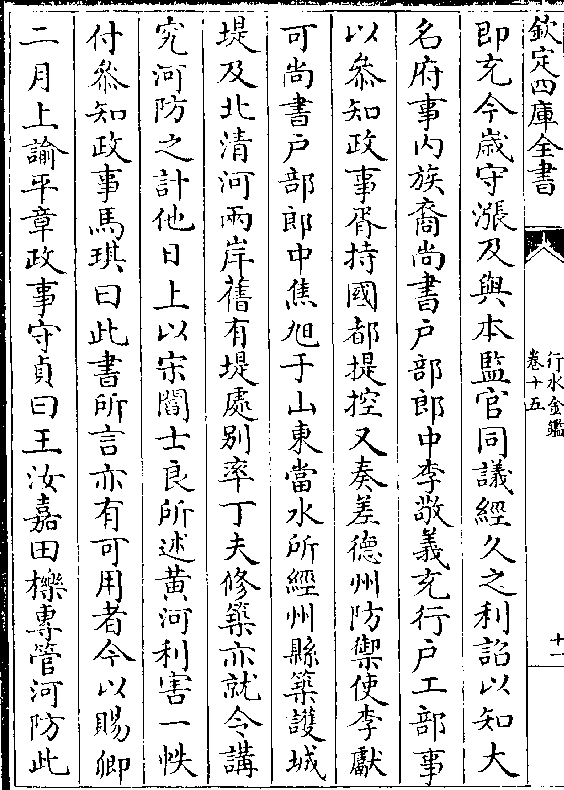 欽定四庫全書
行水金鑑
卷十五
十一
即充今歲守漲及與本監官同議經久之利詔以知大
名府事内族裔尚書户部郎中李敬義充行户工部事
以叅知政事胥持國都提控又奏差德州防禦使李獻
可尚書户部郎中焦旭于山東當水所經州縣築護城
堤及北清河兩岸舊有堤處别率丁夫修築亦就令講
究河防之計他日上以宋閻士良所述黄河利害一帙
付叅知政事馬琪曰此書所言亦有可用者今以賜卿
二月上諭平章政事守貞曰王汝嘉田櫟專管河防此